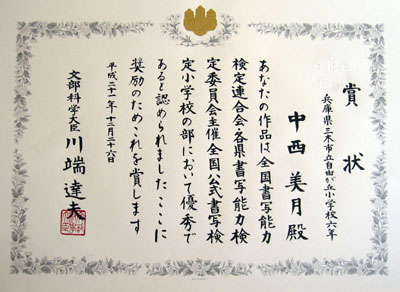 賞状
兵庫県三木市立自由が丘小学校六年
中西美月殿
あなたの作品は全国書写能力
検定連合会・各県書写能力検
定委員会主催全国公式書写検
定小学校の部において優秀で
あると認められましたここに
奨励のためこれを賞します
平成二十一年十二月二十六日
文部科学大臣 川端達夫